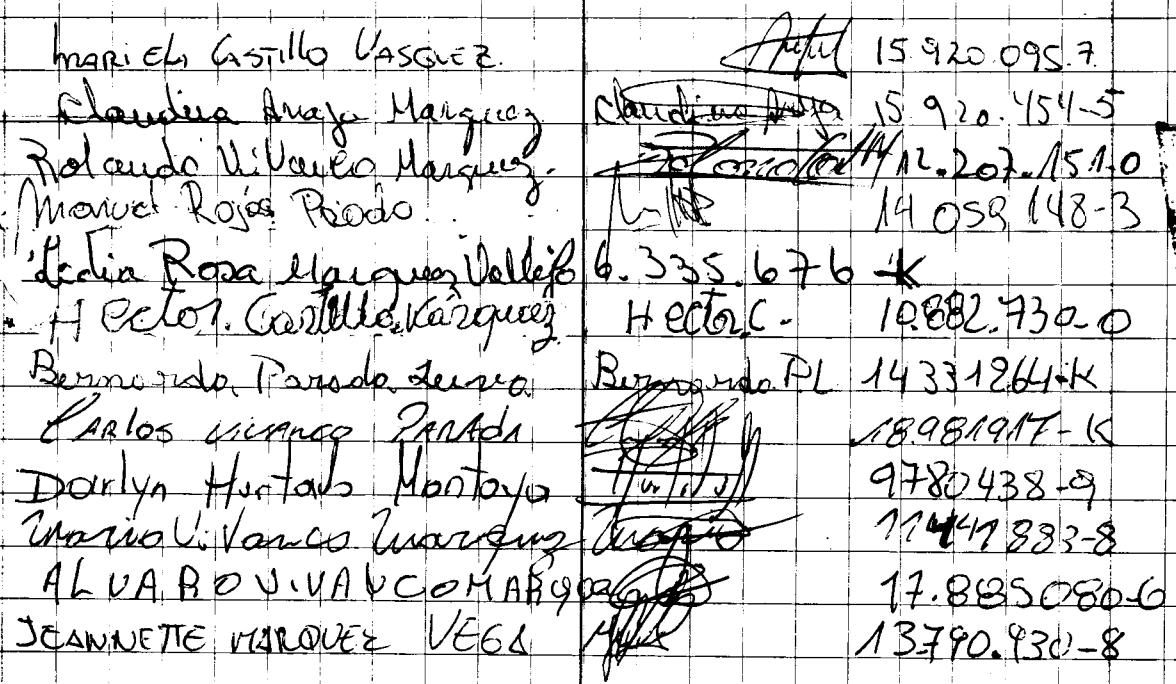 MARIELA CASTILLO VASQUEZ. 15.920.095.7
Claudina Araya Marquez Claudina Araya 15.920.454-5
Rolando Vivanco Marquez. 12.207.151-0
Manuel Rojas Prado 14 059 148-3
Ledia Rosa Marquez Vallejo 6.335.676-K
Hector. Castillo Vasquez Hector C. 10.882.730-0
Bernarda Parada Leiva Bernarda PL 14331264-K
CARLOS VIVANCO PARADA 18.981917-K
Darlyn Hurtado Montoya 9780438-9
Mario Vivanco Marquez Mario 11441883-8
ALVARO VIVANCO MARQUEZ 17.885080-6
JEANNETTE MARQUEZ VEGA 13790.930-8